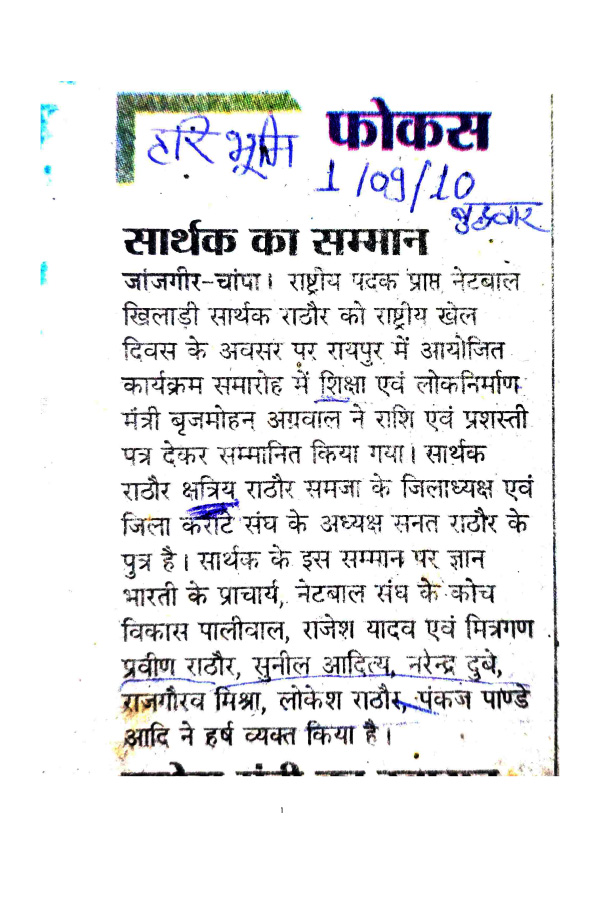 फोकस
हरि भूमि
1/09/10
बुधवार
सार्थक का सम्मान
जांजगीर-चांपा। राष्ट्रीय पदक प्राप्त नेटबाल
खिलाड़ी सार्थक राठौर को राष्ट्रीय खेल
दिवस के अवसर पर रायपुर में आयोजित
कार्यक्रम समारोह में शिक्षा एवं लोकनिर्माण
मंत्री बृजमोहन अग्रवाल ने राशि एवं प्रशस्ती
पत्र देकर सम्मानित किया गया। सार्थक
राठौर क्षत्रिय राठौर समजा के जिलाध्यक्ष एवं
जिला करांटे संघ के अध्यक्ष सनत राठौर के
पुत्र है। सार्थक के इस सम्मान पर ज्ञान
भारती के प्राचार्य, नेटबाल संघ के कोच
विकास पालीवाल, राजेश यादव एवं मित्रगण
प्रवीण राठौर, सुनील आदित्य, नरेन्द्र दुबे,
राजगौरव मिश्रा, लोकेश राठौर, पंकज पाण्डे
आदि ने हर्ष व्यक्त किया है।
1